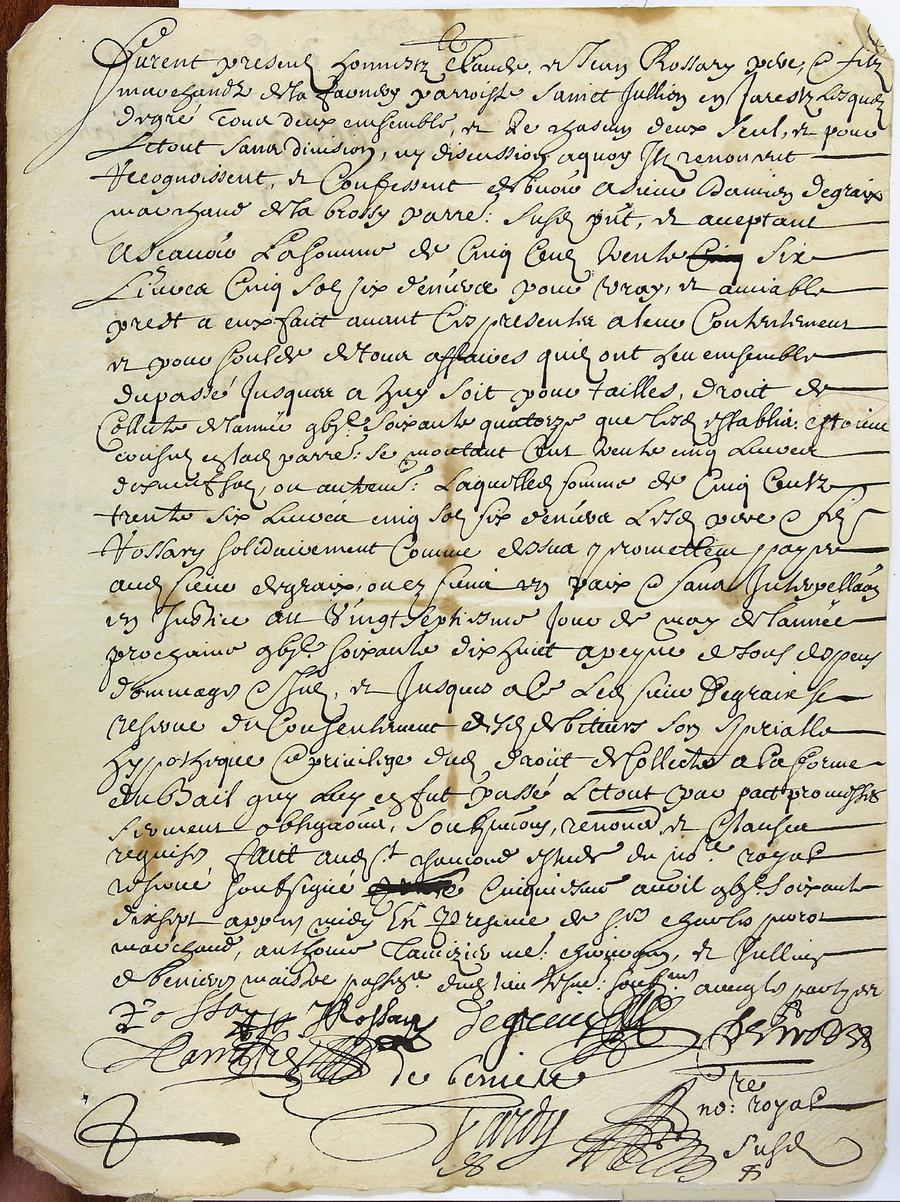 Furent presens honnestz Claude, et Jean Rossary pere, & filz
marchandz de la parroisse Sainct Jullien en Jarestz Lesquelz
de gre Tous deux ensemble, et Ze chascun deux seul, et pour
Le tout sans division, ny discussion aquoy Ilz renoncent
Recognoissent, et Confessent debvoir a sieur Damien degraix
marchand de la brossy parre: susd pnt, et acceptant
Ascavoir La somme de Cinq Cens trente Six
Livres Cinq solz six deniers pour vray, et amiable
prest a eux faict avant Ces presentes a leur Contentement
et pour soulde de tous affaires quilz ont heu ensemble
du passé Jusques a huy soit pour tailles, droit de
Collecte de lannée gbjc Soixante quatorze que lesd establis estoient
consulz en lad parre: se montant Cent trente cinq Livres
dixneuf solz, ou autremt: Laquelled somme de Cinq Centz
trente six Livres cinq solz six deniers Lesd pere & filz
Rossary solidairement Comme dessus promettent payer
aud sieur degraix, ou es siens en paix & sans Interpellaon
en Justice au Vingtseptiesme Jour de may de lannée
prochaine gbjc soixante dixhuict a peyne de tous despens
dommages & Intz, et Jusques a Ce Led sieur Degraix se
reserve du Consentement desd debiteurs son specialle
hypotheque & privilege dud droit de Collecte a la forme
du Bail quy Luy en fut passé Le tout par pact promesses
serment obligaons, soubmions, renons, et Clauses
requises faict aud St chamond estude du nore royal
reservé soubsigné Cinquiesme avril gbjc Soixante
dixsept appres midy En presence de sr Charles pirot
marchand, anthoine Tamizier me: chirurgien, et Jullien
de benieres maistre passemr dud lieu tesmz: soubznes avec les parties
Rossary Rossary Degraix
Tamizier
de beniere
nore: royal
Tardy susd